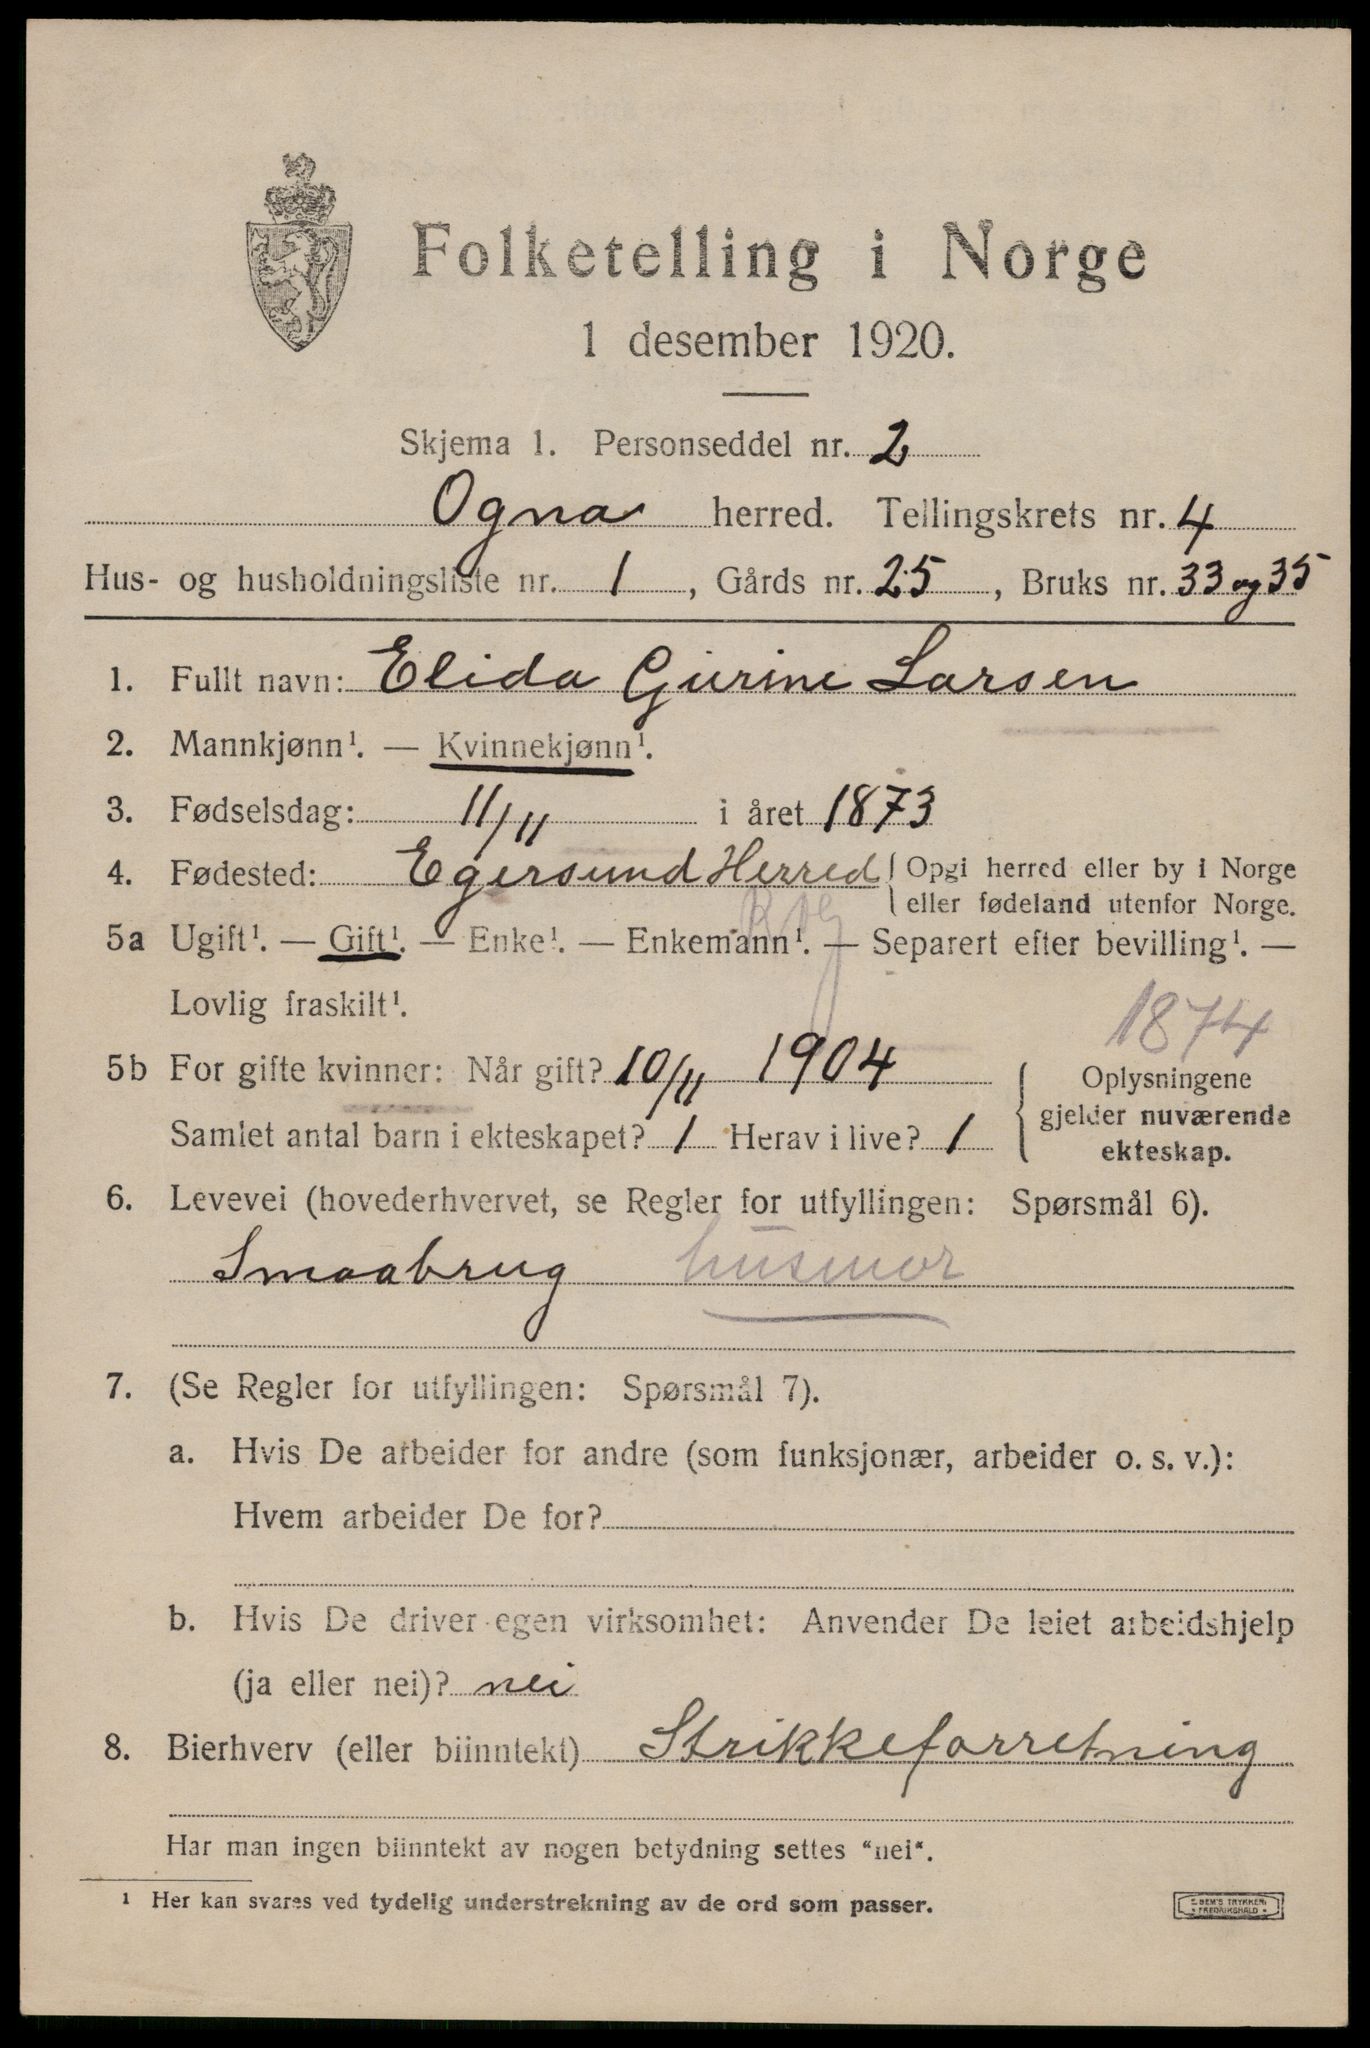 Folketelling i Norge
1 desember 1920.
Skjema 1. Personseddel nr. 2
Ogna herred. Tellingskrets nr. 4
Hus- og husholdningsliste nr. 1, Gårds nr. 25, Bruks nr. 33 og 35
1. Fullt navn: Elida Gurine Larsen
2. Mannkjønn¹. — Kvinnekjønn¹.
3. Fødselsdag: 11/11 i året 1873
4. Fødested: Egersund Herred { Opgi herred eller by i Norge
eller fødeland utenfor Norge.
5a Ugift¹. — Gift¹. — Enke¹. — Enkemann¹. — Separert efter bevilling¹. —
Lovlig fraskilt¹.
1874
5b For gifte kvinner: Når gift? 10/11 1904
Samlet antal barn i ekteskapet? 1 Herav i live? 1
Oplysningene
gjelder nuværende
ekteskap.
6. Levevei (hovederhvervet, se Regler for utfyllingen: Spørsmål 6).
Smaabrug husmor
7. (Se Regler for utfyllingen: Spørsmål 7).
a. Hvis De arbeider for andre (som funksjonær, arbeider o. s. v.):
Hvem arbeider De for?
b. Hvis De driver egen virksomhet: Anvender De leiet arbeidshjelp
(ja eller nei)? nei
8. Bierhverv (eller biinntekt) Strikkeforretning
Har man ingen biinntekt av nogen betydning settes "nei".
¹ Her kan svares ved tydelig understrekning av de ord som passer.
BEM'S TRYKKERI
FREDRIKSHALD